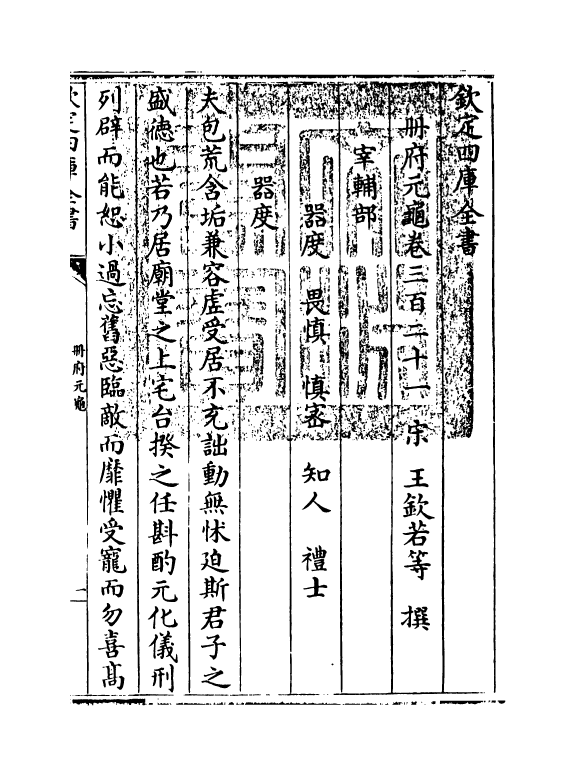 欽定四庫全書
冊府元龜卷三百二十一　宋　王欽若等　撰
宰輔部
器度　畏慎　慎密　知人　禮士
器度
夫包荒含垢兼容虛受居不充詘動無怵迫斯君子之
盛德也若乃居廟堂之上宅台揆之任斟酌元化儀刑
列辟而能恕小過忘舊惡臨敵而靡懼受寵而勿喜髙
欽定四庫全書
冊府元龜
一